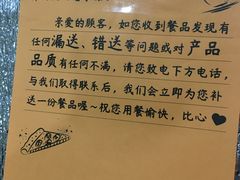 亲爱的顾客，如您收到餐品发现有
任何漏送、错送等问题或对产品
品质有任何不满，请您致电下方电话，
与我们取得联系后，我们会立即为您补
送一份餐品喔~祝您用餐愉快，比心